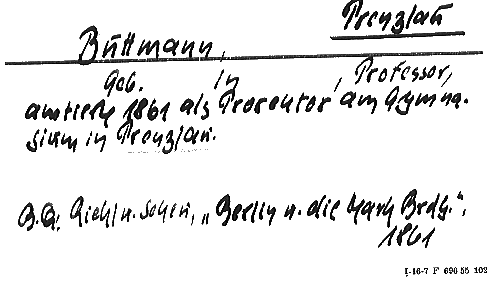 Prenzlau
Buttmann,
Geb. in , Professor,
amtierte 1861 als Prorektor am Gymna-
sium in Prenzlau.
B.Q: Riehl u. Scheu, „Berlin u. die Mark Brdbg.",
1861
I-16-7 F 690 55 102